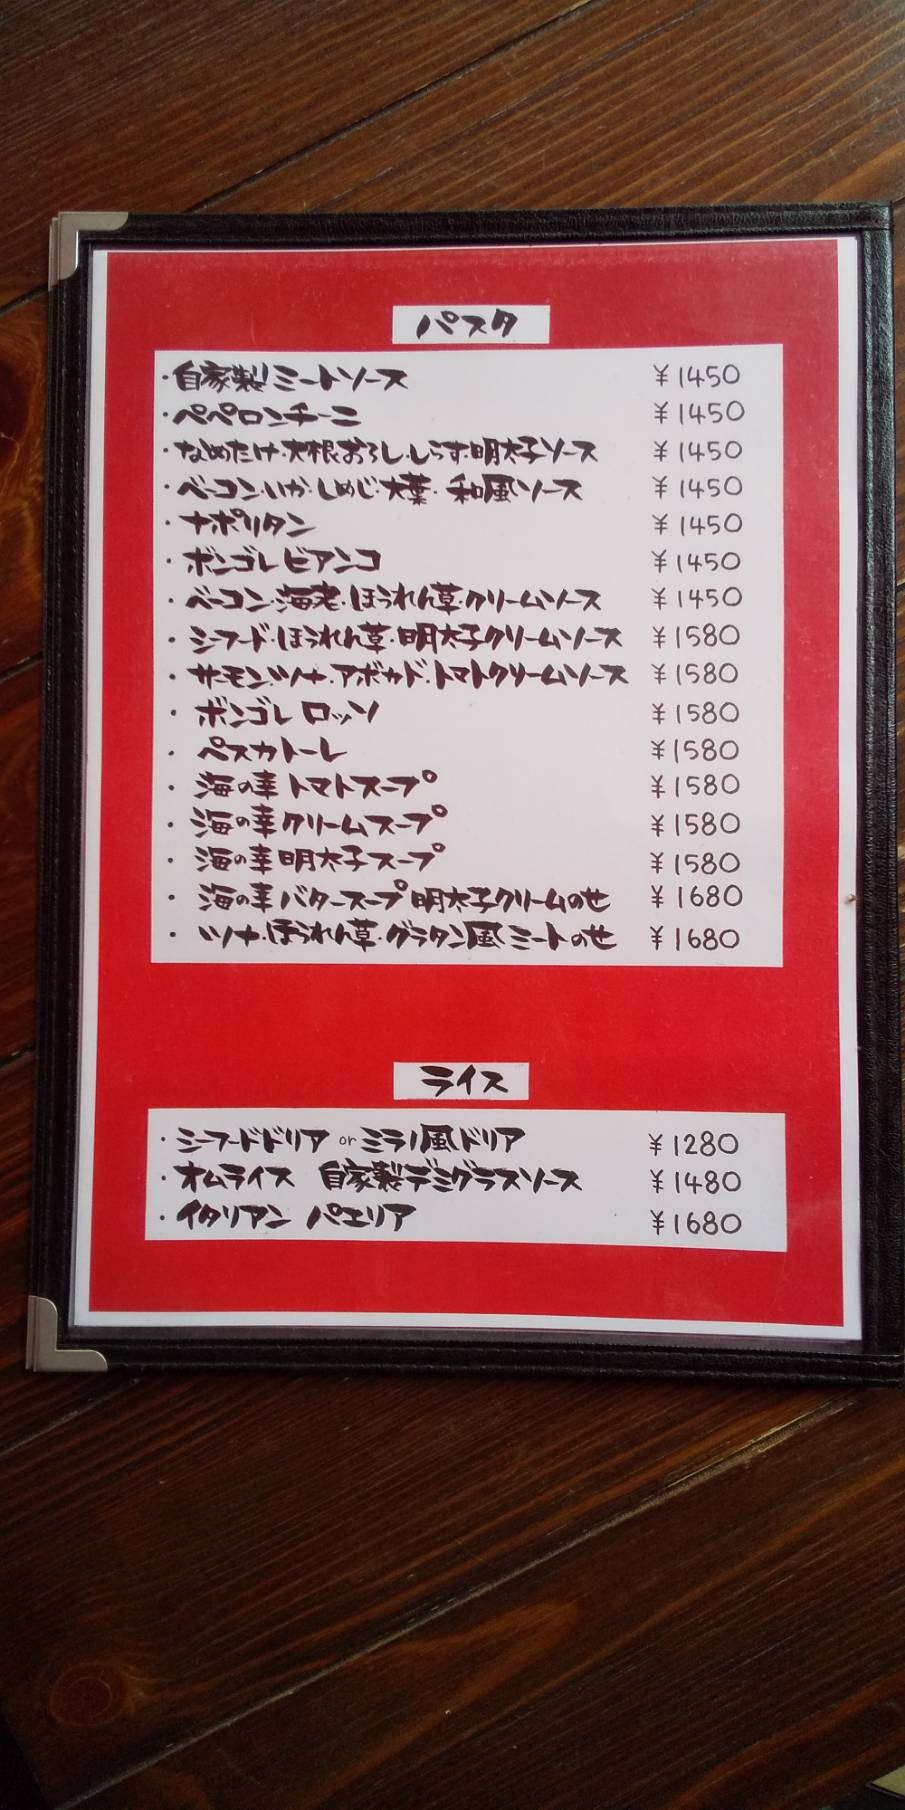 パスタ
・自家製ミートソース ¥1450
・ペペロンチーニ ¥1450
・なめたけ・大根おろし・しらす・明太子ソース ¥1450
・ベーコン・いか・しめじ・大葉・和風ソース ¥1450
・ナポリタン ¥1450
・ボンゴレビアンコ ¥1450
・ベーコン・海老・ほうれん草・クリームソース ¥1450
・シーフード・ほうれん草・明太子クリームソース ¥1580
・サーモン・ツナ・アボカド・トマトクリームソース ¥1580
・ボンゴレ ロッソ ¥1580
・ペスカトーレ ¥1580
・海の幸トマトスープ ¥1580
・海の幸クリームスープ ¥1580
・海の幸明太子スープ ¥1580
・海の幸バタースープ明太子クリームのせ ¥1680
・ツナ・ほうれん草・グラタン風ミートのせ ¥1680
ライス
・シーフードドリア or ミラノ風ドリア ¥1280
・オムライス 自家製デミグラスソース ¥1480
・イタリアン パエリア ¥1680